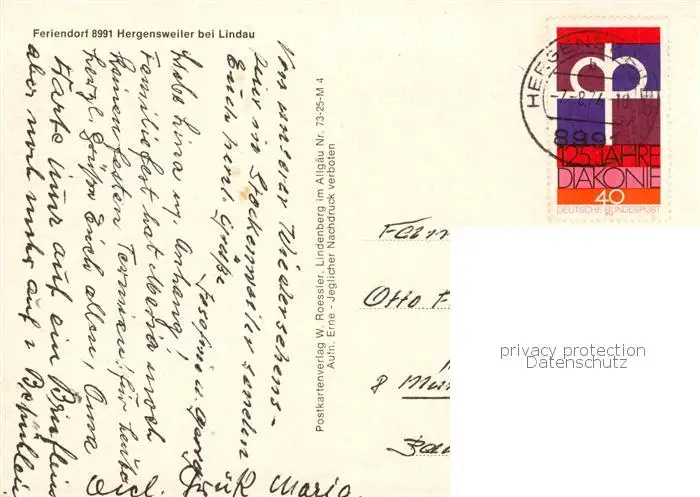 Feriendorf 8991 Hergensweiler bei Lindau
Von unserer Wiedersehens-
feier in Stockenweiler senden
Euch herzl. Grüße
Josefine u.
Liebe Lina u. Anhang!
Familiefest hat Maria noch
keinen festen Termin, für heute
herzl. Grüße Euch allen, Oma
Warte nur auf ein Brieflein
aber noch mehr auf 1
viel. Grüße Maria.
Postkartenverlag W. Roessler, Lindenberg im Allgäu Nr. 73-25-M 4
Aufn. Erne - Jeglicher Nachdruck verboten
8991
125 JAHRE
DIAKONIE
40
DEUTSCHE BUNDESPOST
Fam
Otto
8
privacy protection
Datenschutz